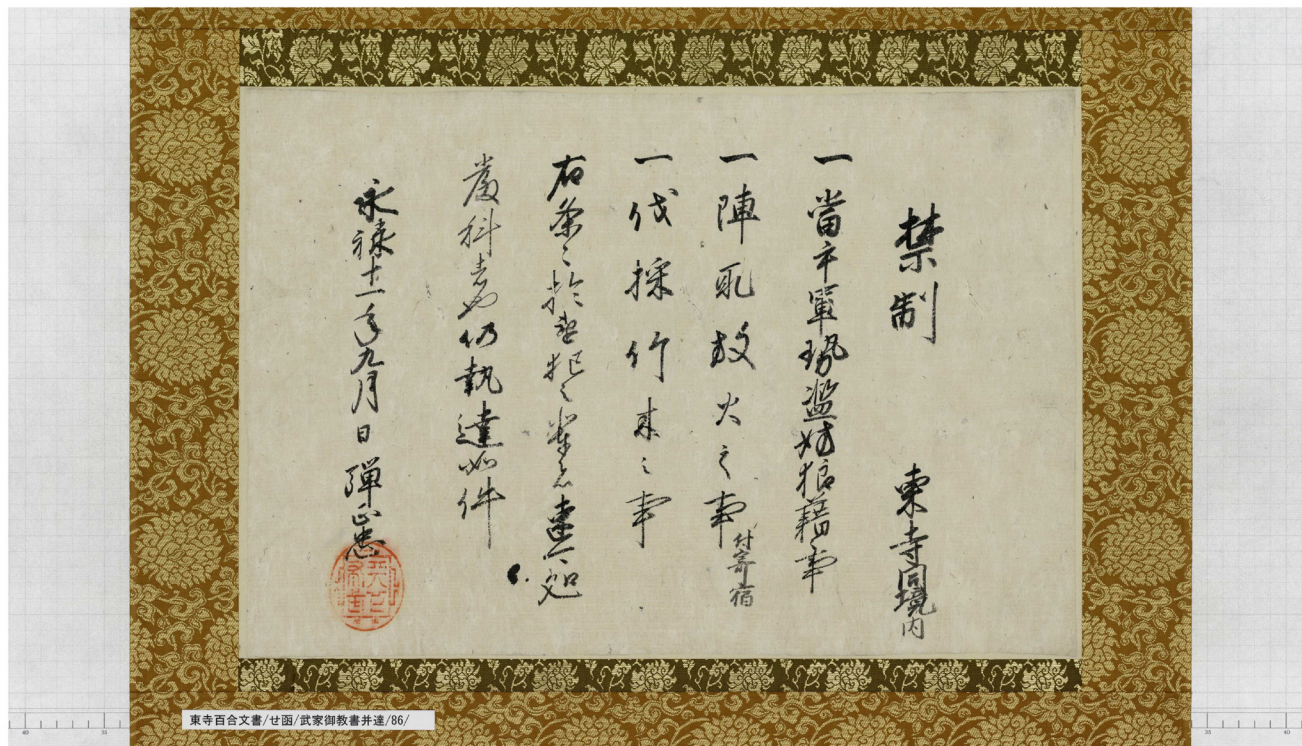 禁制　東寺同境内
一當手軍勢濫妨狼藉事
一陣取放火之事付寄宿
一伐採竹木之事
右条々於違犯之輩者速可処
嚴科者也仍執達如件
永禄十一年九月日 弾正忠
天下布武
東寺百合文書/せ函/武家御教書并達/86/